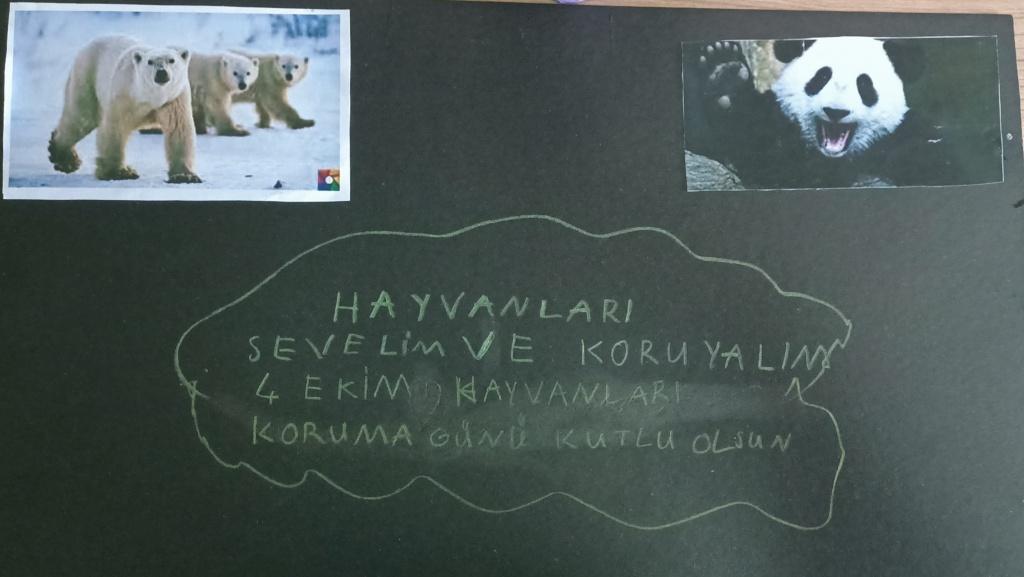 HAYVANLARI
SEVELİM VE KORUYALIM
4 EKİM HAYVANLARI
KORUMA GÜNÜ KUTLU OLSUN